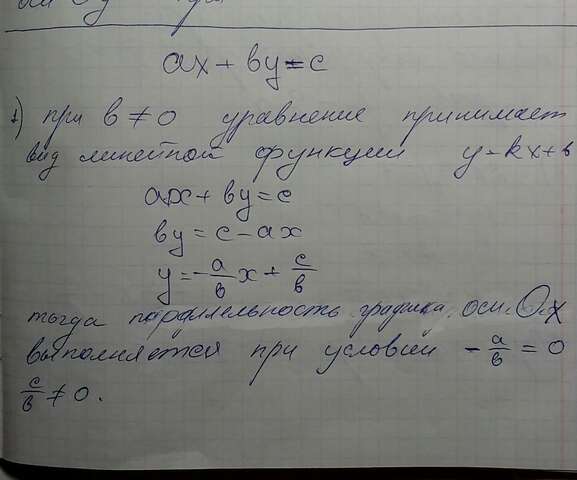 ax + by = c
1) при b ≠ 0 уравнение принимает
вид линейной функции y = kx + b
ax + by = c
by = c - ax
y = -a/b x + c/b
тогда параллельность графика оси Ox
выполняется при условии -a/b = 0
c/b ≠ 0.